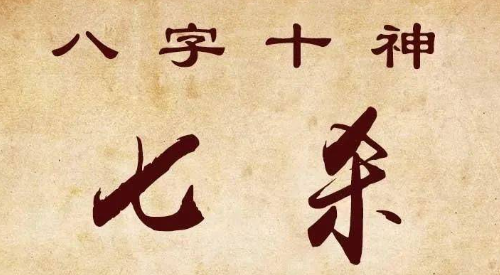 八字十神
七杀